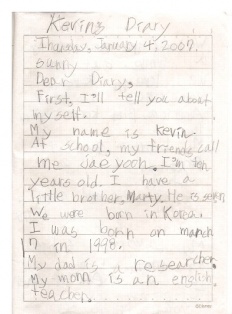 Kevin's Diary
Thursday, January 4, 2007.
sunny
Dear Diary,
First, I'll tell you about
my self.
My name is Kevin.
At school, my friends call
me Jae yoon. I'm ten
years old. I have a
little brother, Marty. He is seven
We were born in Korea.
I was born on march
17 in 1998.
My dad is a researcher.
My mom is an english
teacher.